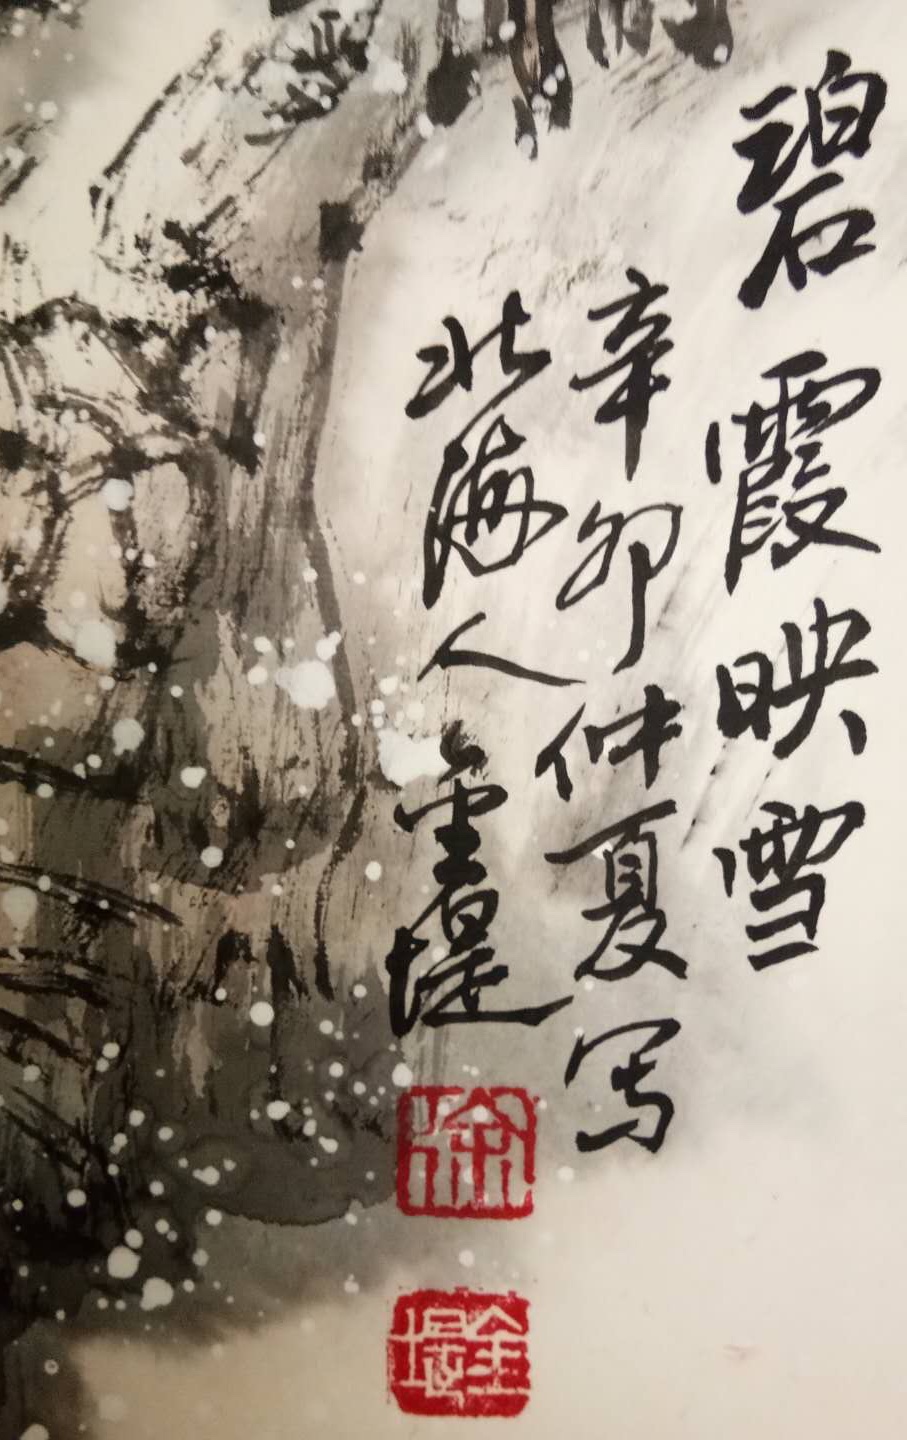 碧霞映雪
辛卯仲夏写
北海人金堤
徐
金堤